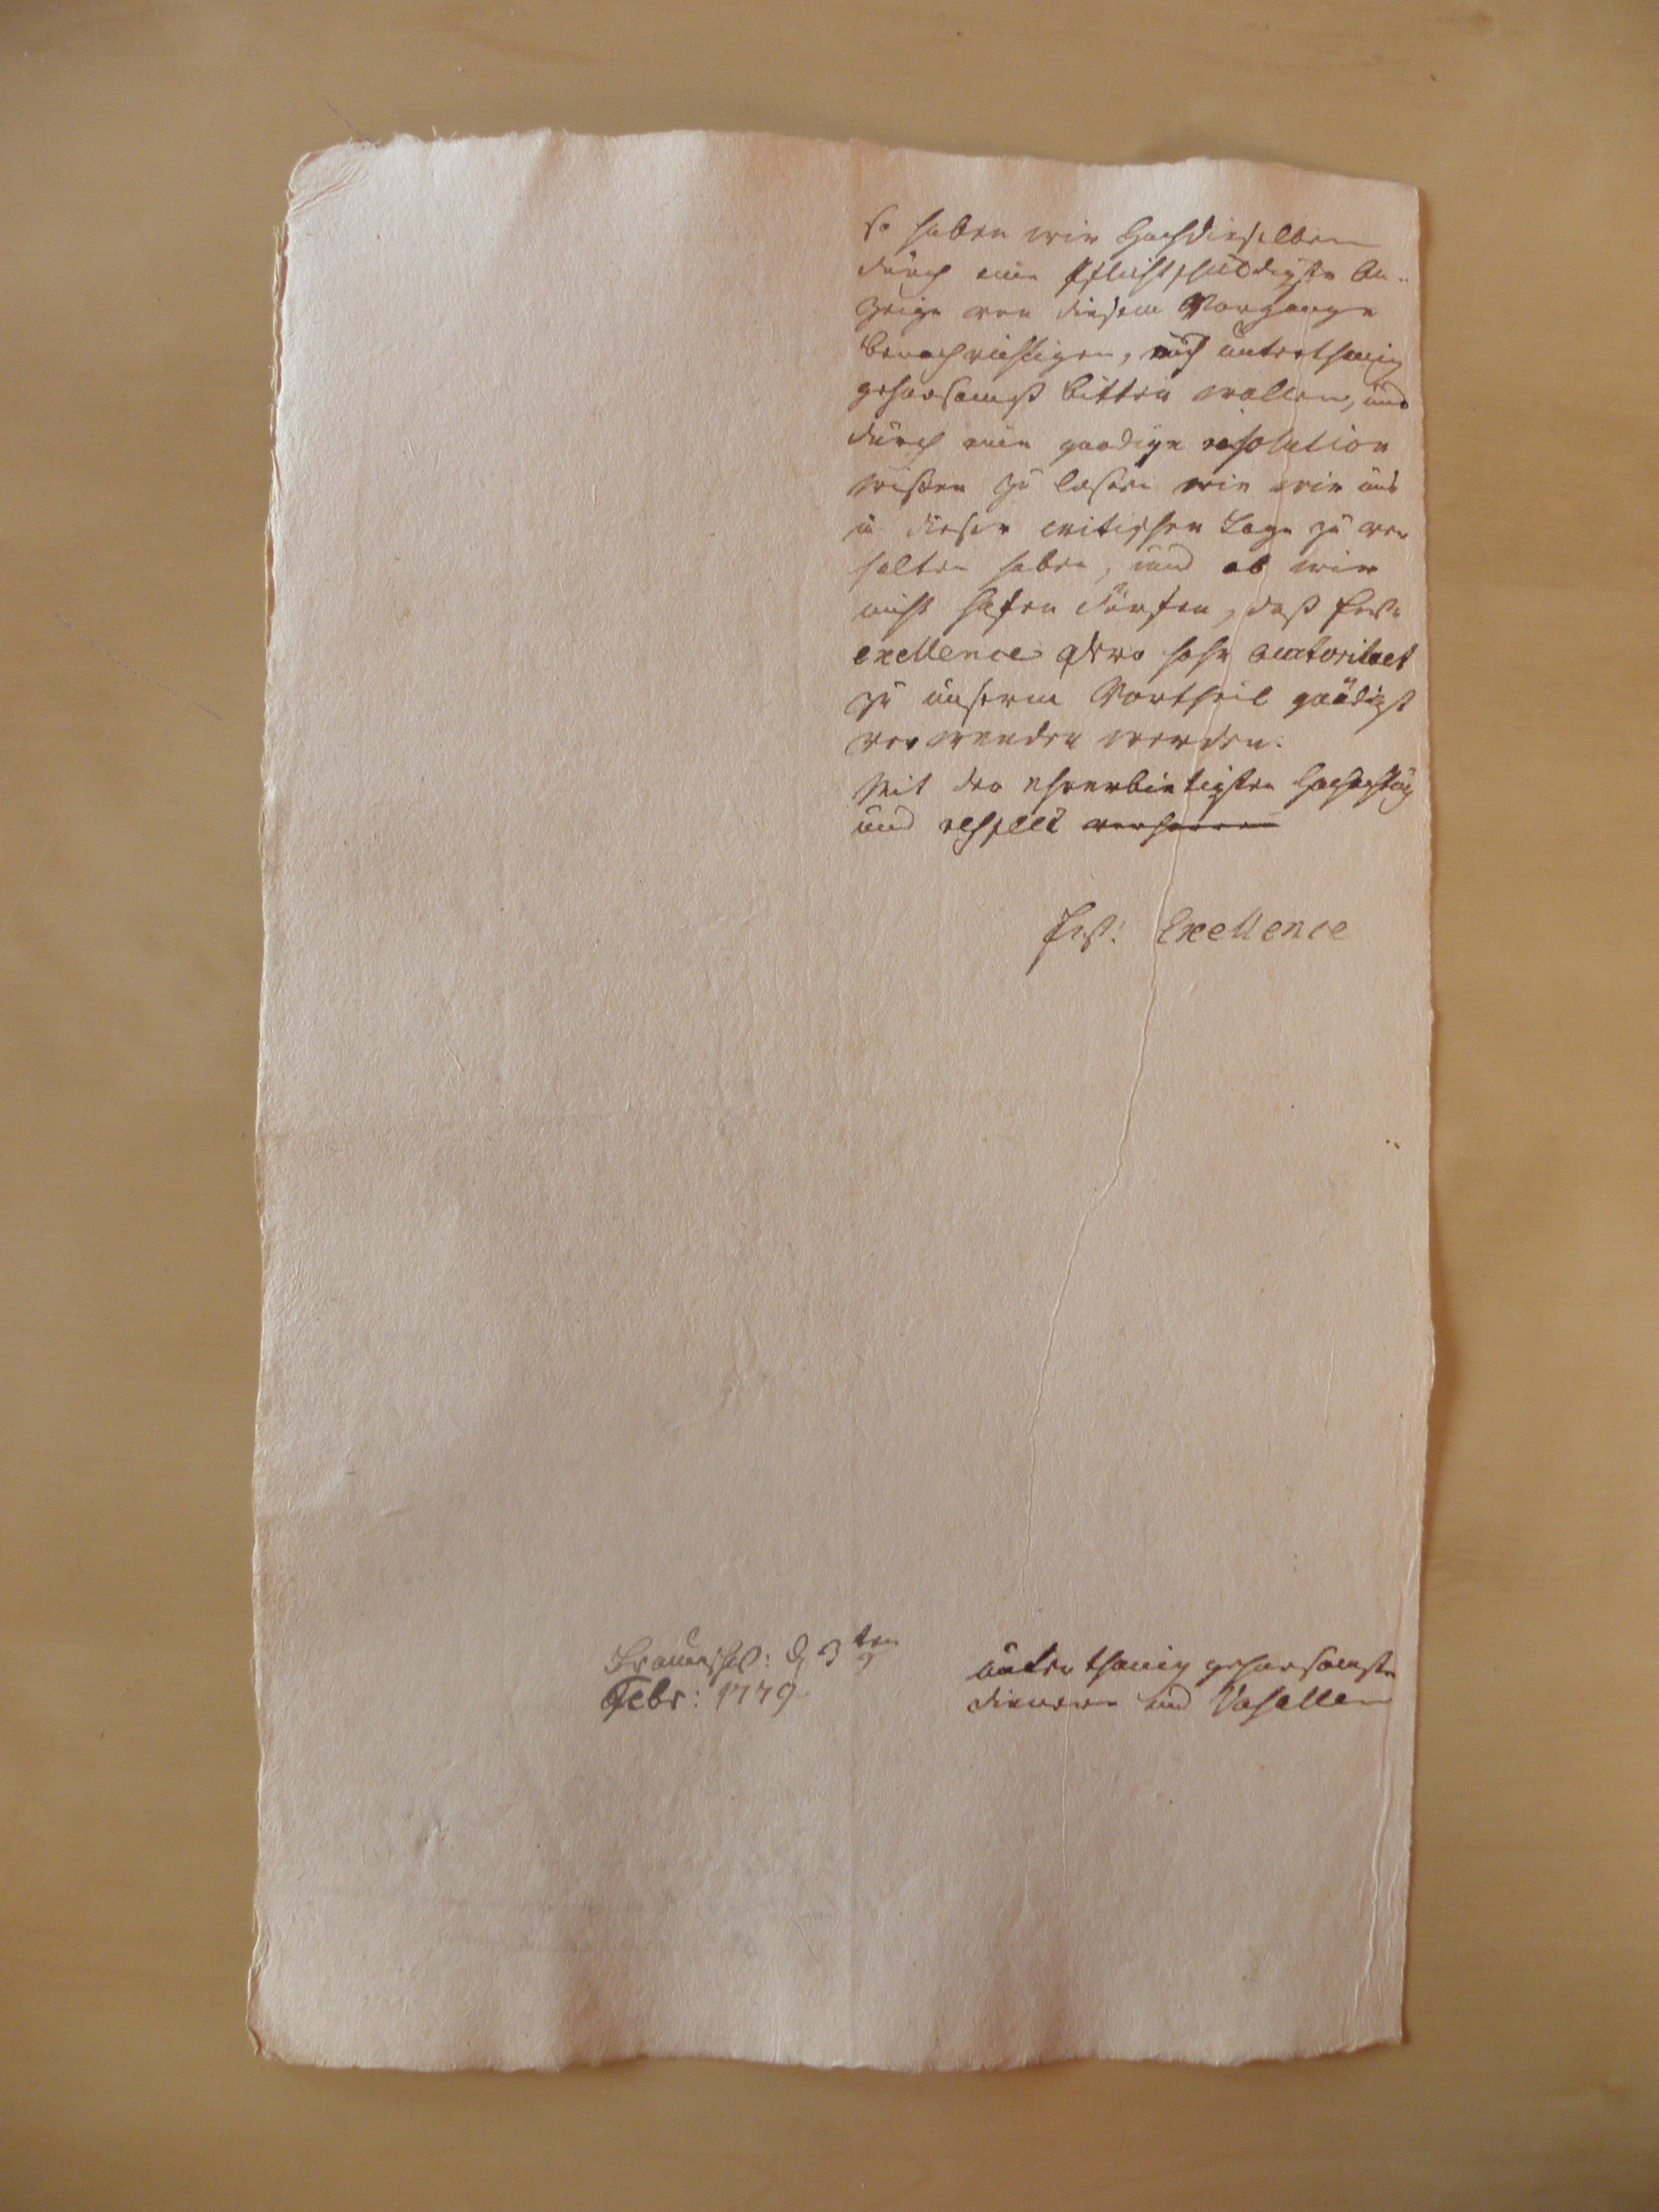 so haben wir Hochdieselben
durch eine Pflichtschuldigste An-
zeige von diesem Vorgange
benachrichtigen, auch unterthanig
gehorsamst bitten wollen, uns
durch eine gnadige resolution
wißen zu laßen wie wir uns
in dieser critischen Lage zu ver
halten haben, und ob wir
nicht hofen dürfen, daß
exellence dero hohe autoritaet
zu unserem Vortheil gnädigst
verwenden werden.
Mit der ehrerbietigsten Hochachtug
und respect verharren
Exellence
d 3ten
Febr: 1779
unterthanig gehorsamste
dienere und Vasallen